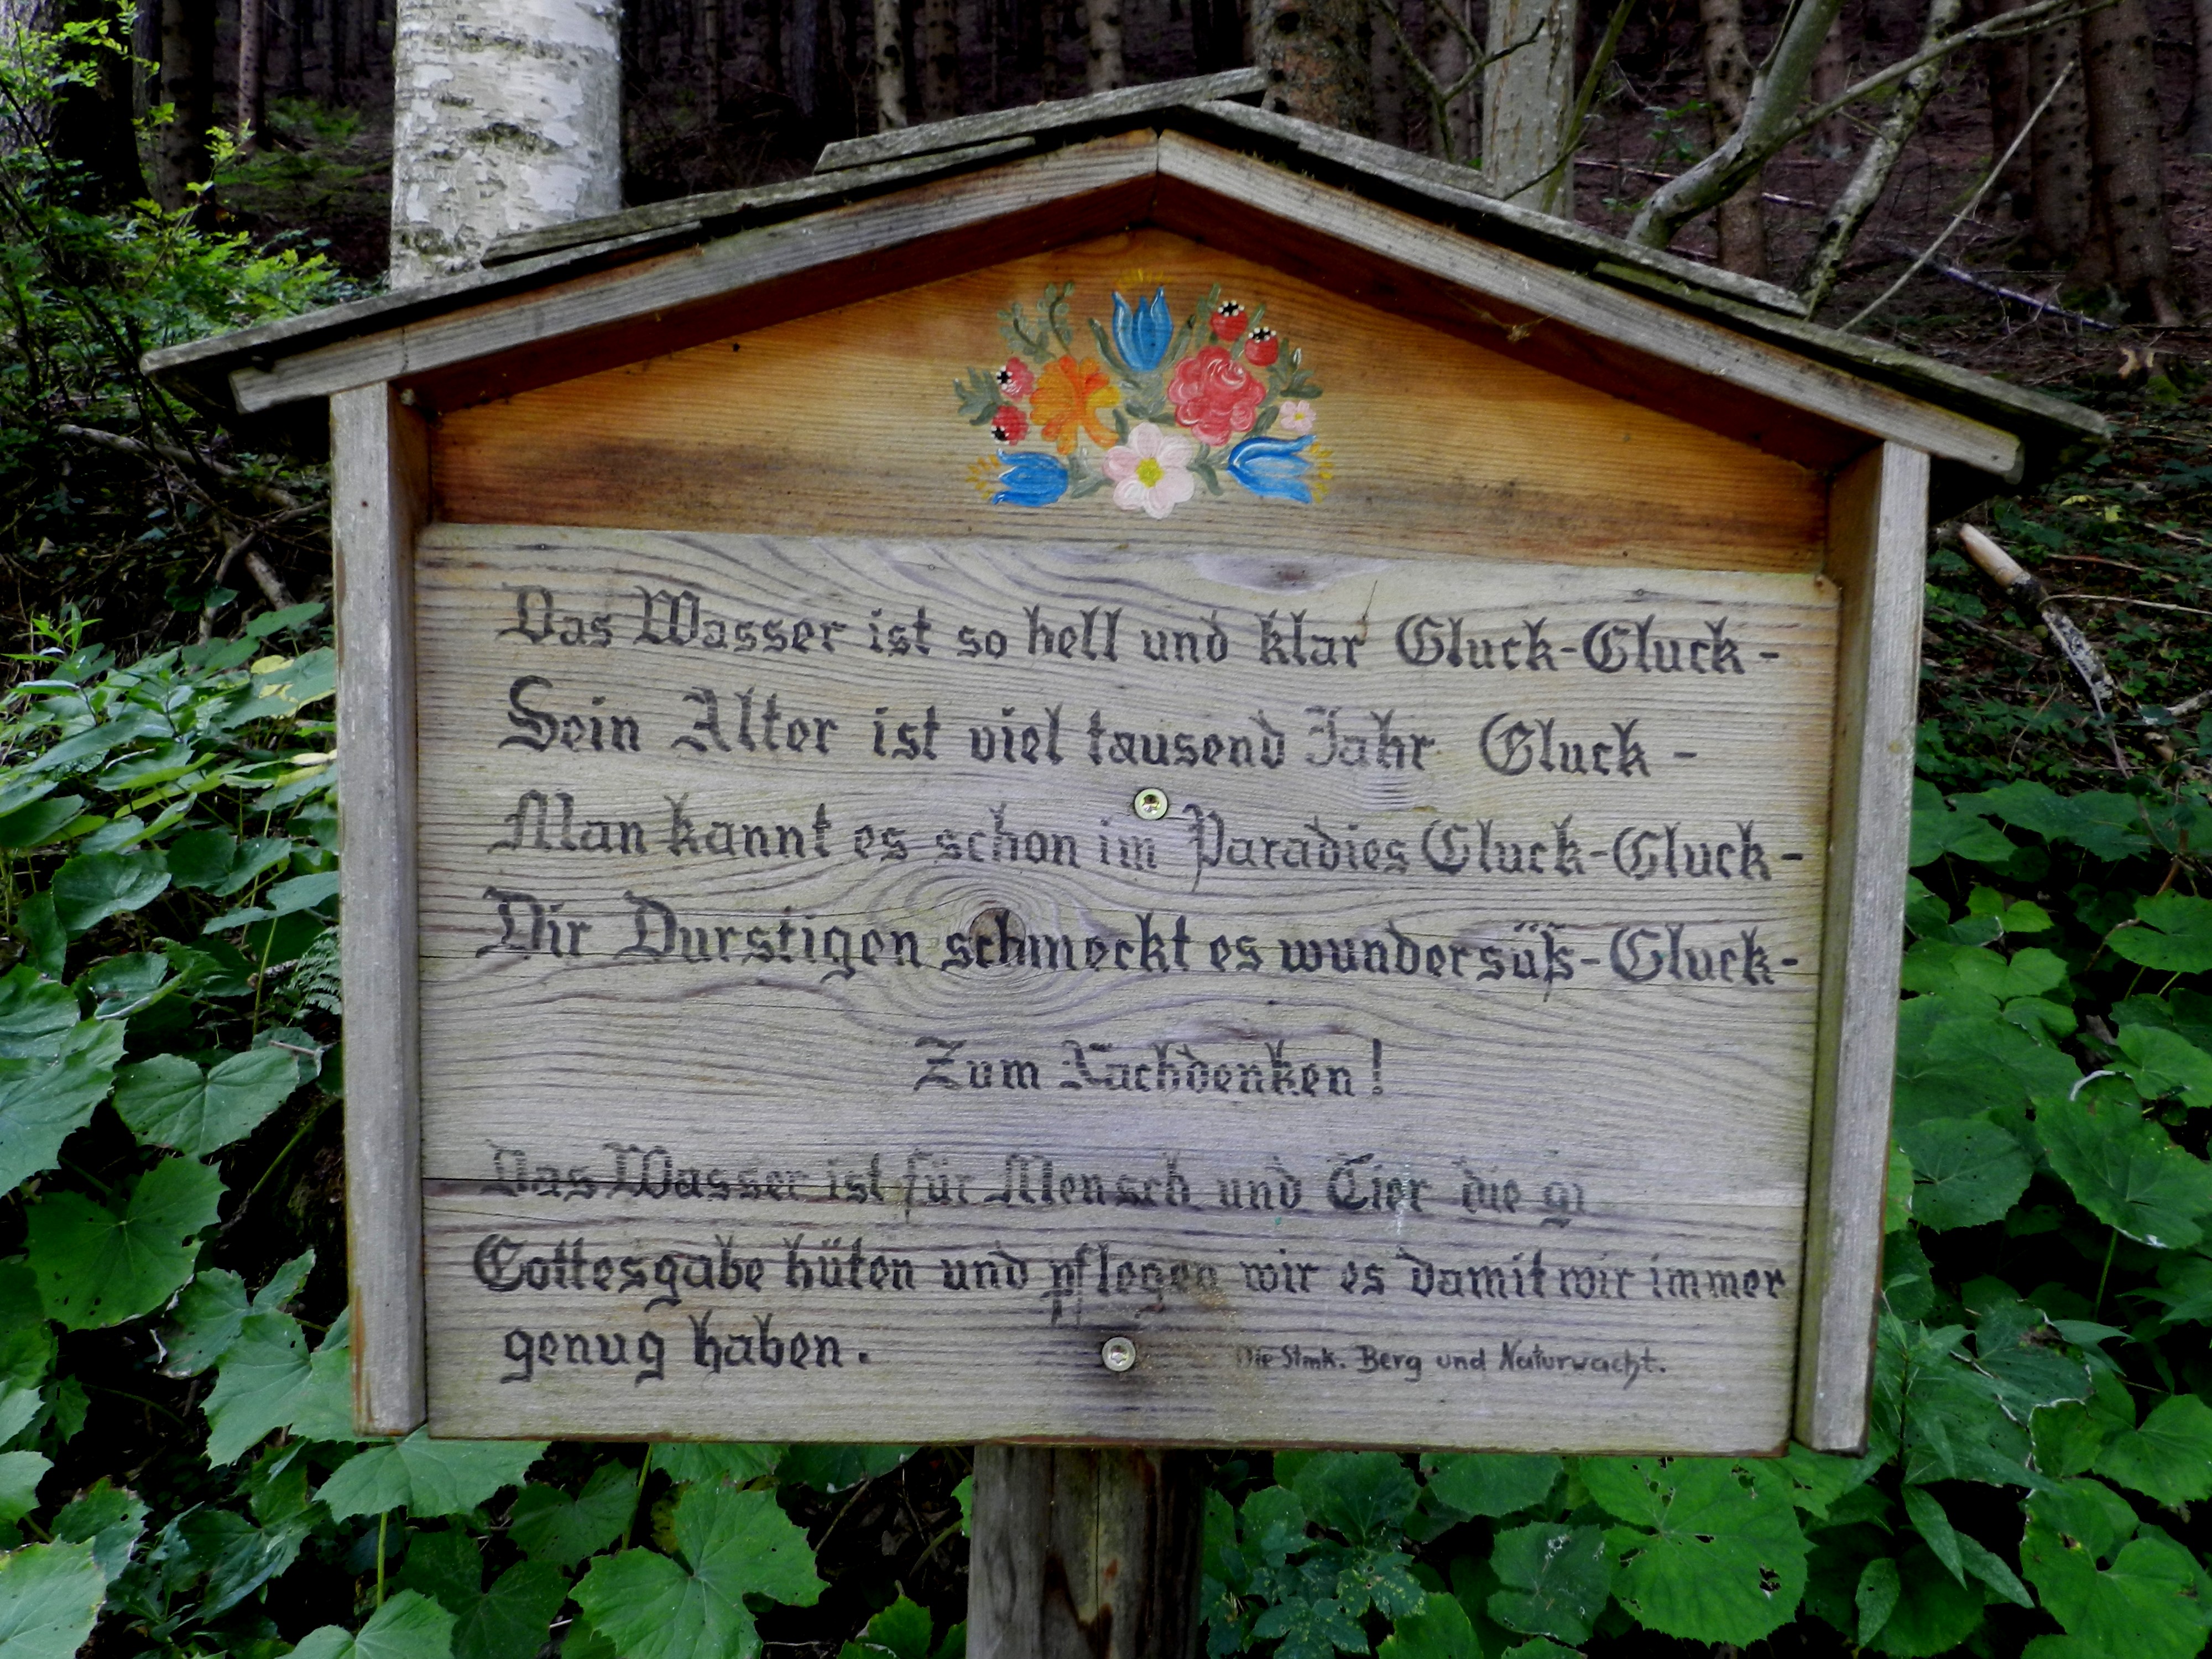 Das Wasser ist so hell und klar Gluck-Gluck-
Sein Alter ist viel tausend Jahr Gluck -
Man kannt es schon im Paradies Gluck-Gluck-
Dir Durstigen schmeckt es wundersüß-Gluck-
Zum Nachdenken!
Das Wasser ist für Mensch und Tier die
Gottesgabe hüten und pflegen wir es damit wir immer
genug haben.
Die Stmk. Berg und Naturwacht.